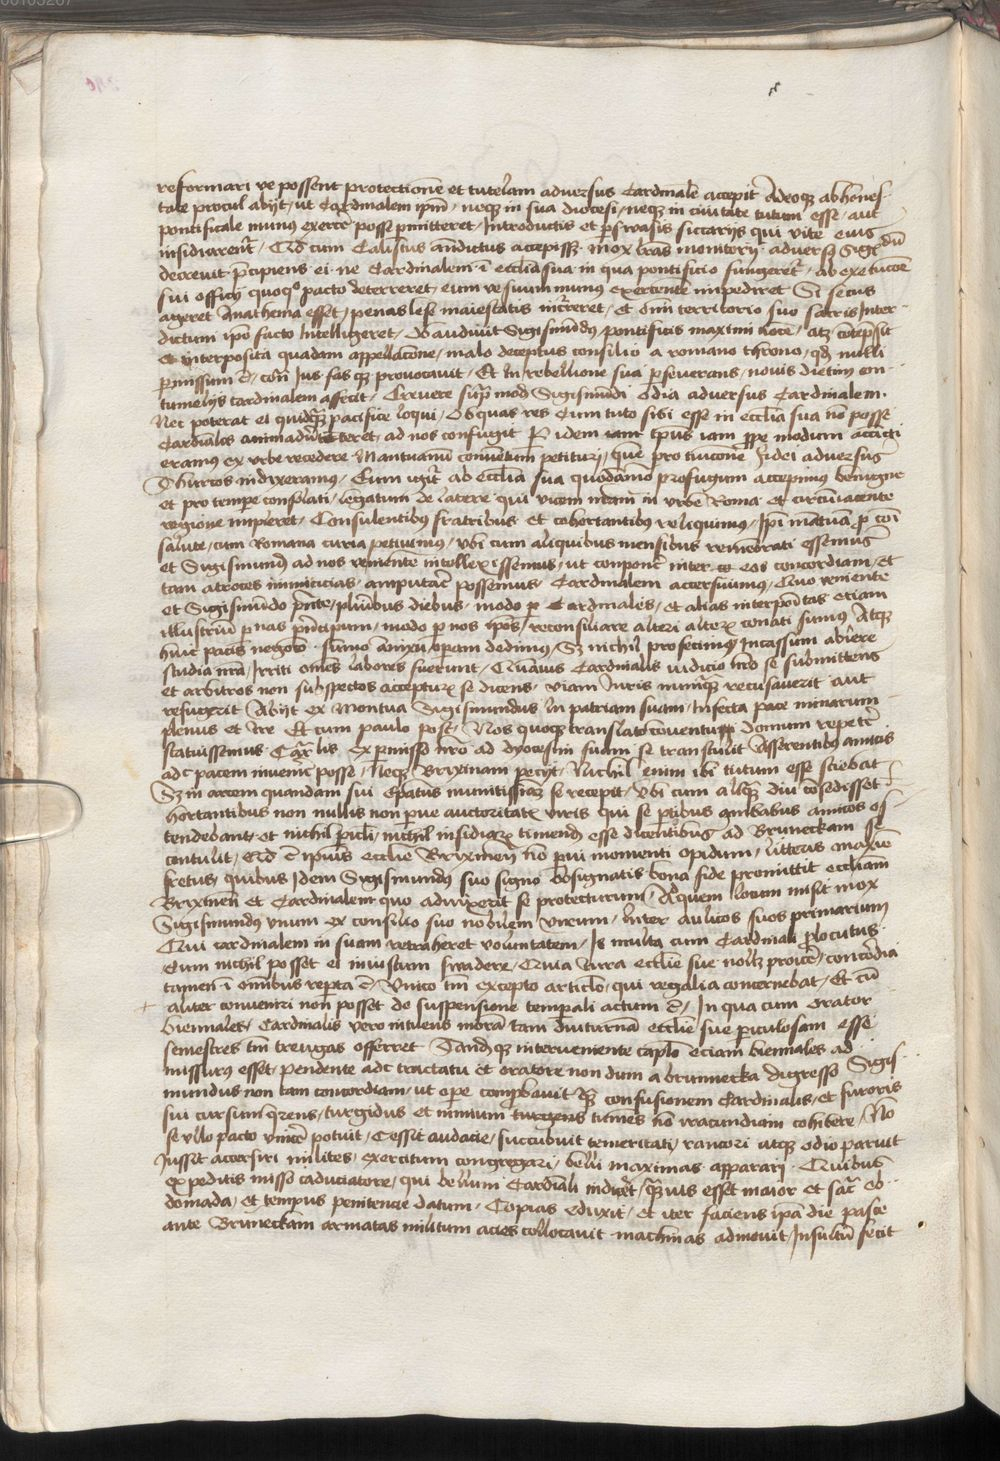 reformari ve possent protectionē et tutelam adversus Cardinalē accepit Adeoqȝ ab hones-
tate procul abijt, ut Cardinalem ipm̄, neqȝ in sua diocesi, neqȝ in civitate tutum esse, aut
pontificale munus exercere posse pmitteret, Introductis et pswasis siccarijs qui vite eius
insidiarent᷑, Id cum Calistus auditus accepiss, mox lr̄as monitorij adversȝ Sigis dū
decrevit p̄cipiens ei ne Cardinalem ī ecclia sua in qua pontificio fungeret᷑, ab executōe
sui officij quoqo pacto deterreret, eum ve suum munus exercentē impediret Si secus
ageret Anathema esset, penas lese maiestatis incr̄reret, et om̄i territorio suo sacris Inter-
dictum ipō facto Intelligeret, audivit Sigismūdus pontificis maximi vocē, atȝ cōtēpsit
Et interposita quadam appellacōne, malo deceptus consilio a romano throno, qd̄ nulli
pmissum ē, cōn̄ Jus fas qȝ provocavit, Et In rebellione sua pseverans, novis dietim con-
tumelijs Cardinalem affecit, Crevere sup̄ mod̄ Sigismūdi odia adversus Cardinalem.
Nec poterat ei quidqȝ pacifice loqui, Ob quas res Cum tuto sibi esse in ecclia sua nō posse
Cardinalis animadv̄teret, ad nos confugit P idem tp̄us iam ppe modum accincti
eramus ex urbe recedere Mantuanū conventum petituri, quē pro tuicionē fidei adversus
Thurcos indixeramus, Cum igit᷑ ab ecclia sua quodāmo profugum accepimus benigne
et pro tempe consolati, legatum de latere qui vicem nr̄am in urbe Roma et circūiacente
regione impleret, Consulentibus fratribus et cohortantibus reliquimus, Ipī mātuā p cōi
salute, cum Romana curia petivimus, Ubi cum aliquibus mensibus remorati essemus
et Sigismund̄ ad nos venientē intellexissemus, ut componē inter eos concordiam, et
tam atroces inimicicias, amputare possemus, Cardinalem accersivimus, Quo veniente
et Sigismūdo p̄nte, pluribus diebus, modo p Cardinales, et alias interpoitas etiam
illustriū psonas p̄ncipum, modo p nos ipos, reconsiliare alteri alterȝ conati sumus Atqȝ
huic pacis negotō sumo annixu opam dedimus, Sȝ nichil profecimus, Incassum abiere
studia nr̄a, Irriti om̄es labores fuerunt, Quāvis Cardinalis iudicio nr̄o se submittens
et arbitros non suspectos accepturȝ se dicens, viam Juris nunqȝ recusaverit aut
refugerit Abijt ex Montua Sigismundus In patriam suam, Infecta pace minarum
plenus et Ire Et cum paulo post, Nos quoqȝ translato conventu domum repetē
statuissemus Car̄lis ex pmisso nr̄o ad dyocesim suam se transtulit Asserentibus amicis
adc pacem invenire posse, Neqȝ Brixinam petijt, Nichil enim ibi tutum esse sciebat
Sȝ in arcem quandam sui Epatus munitissimā se recepit, Ubi cum aliqȝ diu cōsedisset
hortantibus non nullis non parve auctoritatȝ viris qui se ptibus ambabus amicos os-
tendebant, et nichil picli, nichil insidiarȝ timend̄ esse dicentibus ad Bruneckam se
contulit, Id ē ipius ecclie Brixinen̄ nō pvi momenti opidum, litteris maxīe
fretus, quibus Idem Sigismundus suo signo obsignatis bona fide promittit eccliam
Brixinen̄ et Cardinalem quo adiuxerit se protecturum, Ad quem locum misit mox
Sigismundus unum ex consilio suo nobilem virum, Inter aulicos suos primarium
Qui Cardinalem in suam retraheret voluntatem, Is multa cum Cardinali plocutus
Cum nichil posset ei iniustum swadere, Quia Jura ecclie sue nolȝ proicere, concordia
tamen ī om̄ibus repta ē, Unico tm̄ excepto articlo, qui regalia concernebat, Et cū
aliter conveniri non posset de suspensione temporali actum ē, In qua cum orator
biennales, Cardinalis vero nitulens morā tam diuturnā ecclie sue piculosam esse
semestres tm̄ treugas offerret Tandqȝ interveniente caplō eciam biennales ad
missurus esset, pendente adc tractatu et oratore non dum a brunnecka digresso Sigis-
mundus non tam concordiam, ut ope comprbavit, qȝ confusionem Cardinalis, et furoris
sui cursum qrens, turgidus et nimium tumēs nō iracundiam cohibere, Nō
se ullo pacto vincē potuit, Cessit audacie, succubuit temeritati, rancori atqȝ odio paruit
Jussit accersiri milites, exercitum congregari, belli maximas apparari. Quibus
expeditis misso caduciatore, qui bellum Cardināli indicēt, qȝvis esset maior et sac̄ eb-
domada, et tempus penitencie datum, Copias eduxit, et iter faciens ipā die pasce
ante Bruneckam armatas militum acies collocavit machinas admovit, Insultū fecit